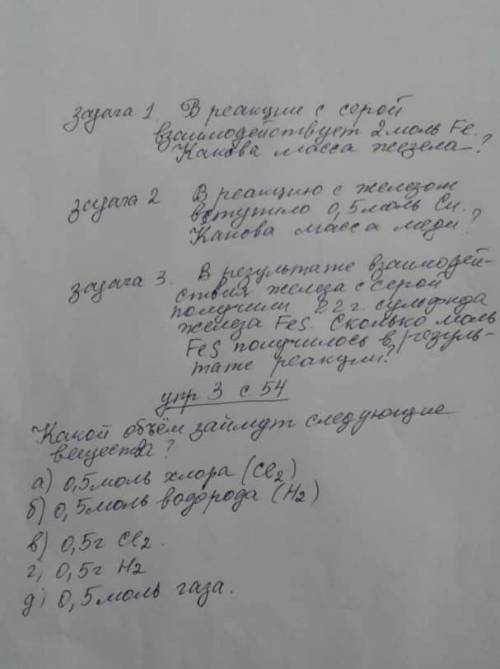 Задача 1 В реакции с серой
взаимодействует 2 моль Fe.
Какова масса железа?
Задача 2 В реакцию с железом
вступило 0,5 моль Cu.
Какова масса меди?
Задача 3. В результате взаимодей-
ствия железа с серой
получили 22 г. сульфида
железа FeS. Сколько моль
FeS получилось в резуль-
тате реакции?
упр 3 с 54
Какой объём займут следующие
вещества?
а) 0,5 моль хлора (Cl2)
б) 0,5 моль водорода (H2)
в) 0,5г Cl2.
г) 0,5г H2
д) 0,5 моль газа.